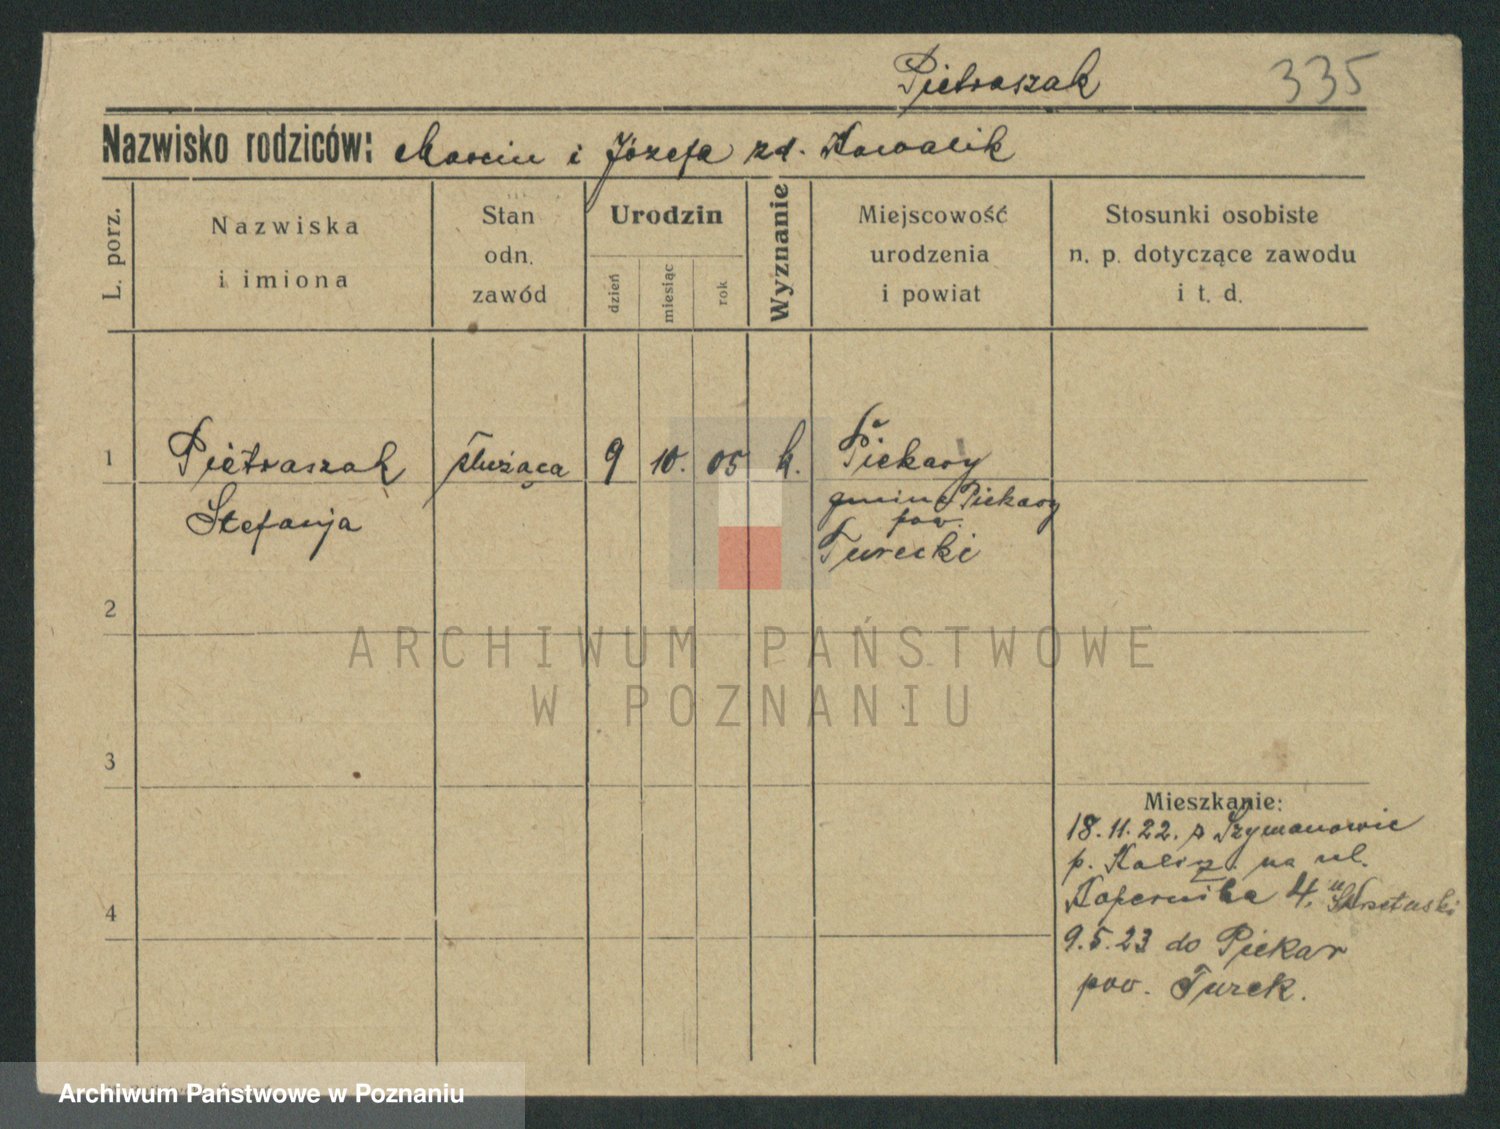 Pietraszak 335
Nazwisko rodziców: Marcin i Józefa zd. Kowalik
L. porz.
Nazwiska
i imiona
Stan
odn.
zawód
Urodzin
dzień
miesiąc
rok
Wyznanie
Miejscowość
urodzenia
i powiat
Stosunki osobiste
n. p. dotyczące zawodu
i t. d.
1 Pietraszak służąca 9 10. 05 k. Piekary
Stefanja
gmina Piekary
pow.
Turecki
2
ARCHIWUM PAŃSTWOWE
W POZNANIU
3
Mieszkanie:
18.11.22. z Szymanowic
p. Kalisz. na ul.
4
Kopernika 4. u Skrzetuski
9.5.23 do Piekar
pow. Turek.
Archiwum Państwowe w Poznaniu